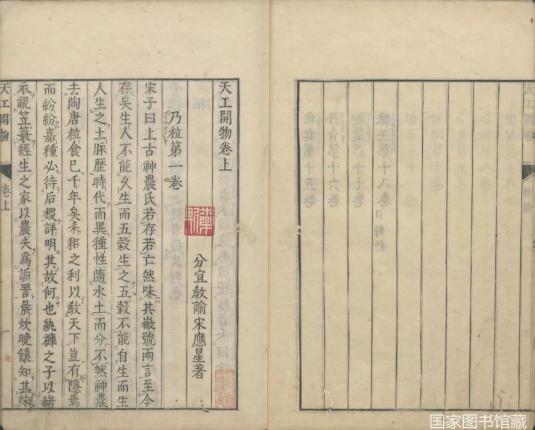 天工開物卷上
分宜教諭宋應星著
乃粒第一卷
宋子曰上古神農氏若存若亡然味其徽號兩言至今
存矣生人不能久生而五穀生之五穀不能自生而生
人生之土脉歷時代而異種性隨水土而分不然神農
去陶唐粒食已千年矣耒耜之利以教天下豈有隱焉
而紛紛嘉種必待后稷詳明其故何也紈褲之子以赭
衣視笠簑經生之家以農夫爲詬詈晨炊晚饟知其味
天工開物
卷上
一
天工開物
國家图书馆藏